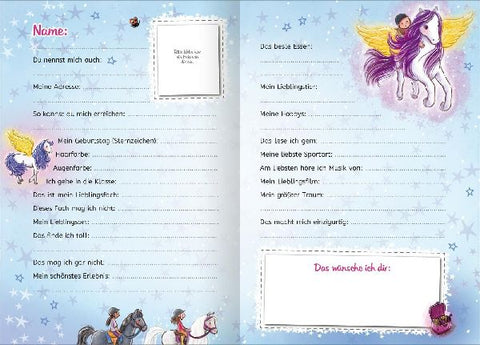 Name:
Du nennst mich auch:
Meine Adresse:
So kannst du mich erreichen:
Mein Geburtstag (Sternzeichen):
Haarfarbe:
Augenfarbe:
Ich gehe in die Klasse:
Das ist mein Lieblingsfach:
Dieses Fach mag ich nicht:
Mein Lieblingssong:
Das finde ich toll:
Das mag ich gar nicht:
Mein schönstes Erlebnis:
Das beste Essen:
Mein Lieblingstier:
Meine Hobbys:
Das lese ich gern:
Meine liebste Sportart:
Am liebsten höre ich Musik von:
Mein Lieblingsfilm:
Mein größter Traum:
Das macht mich einzigartig:
Das wünsche ich dir: